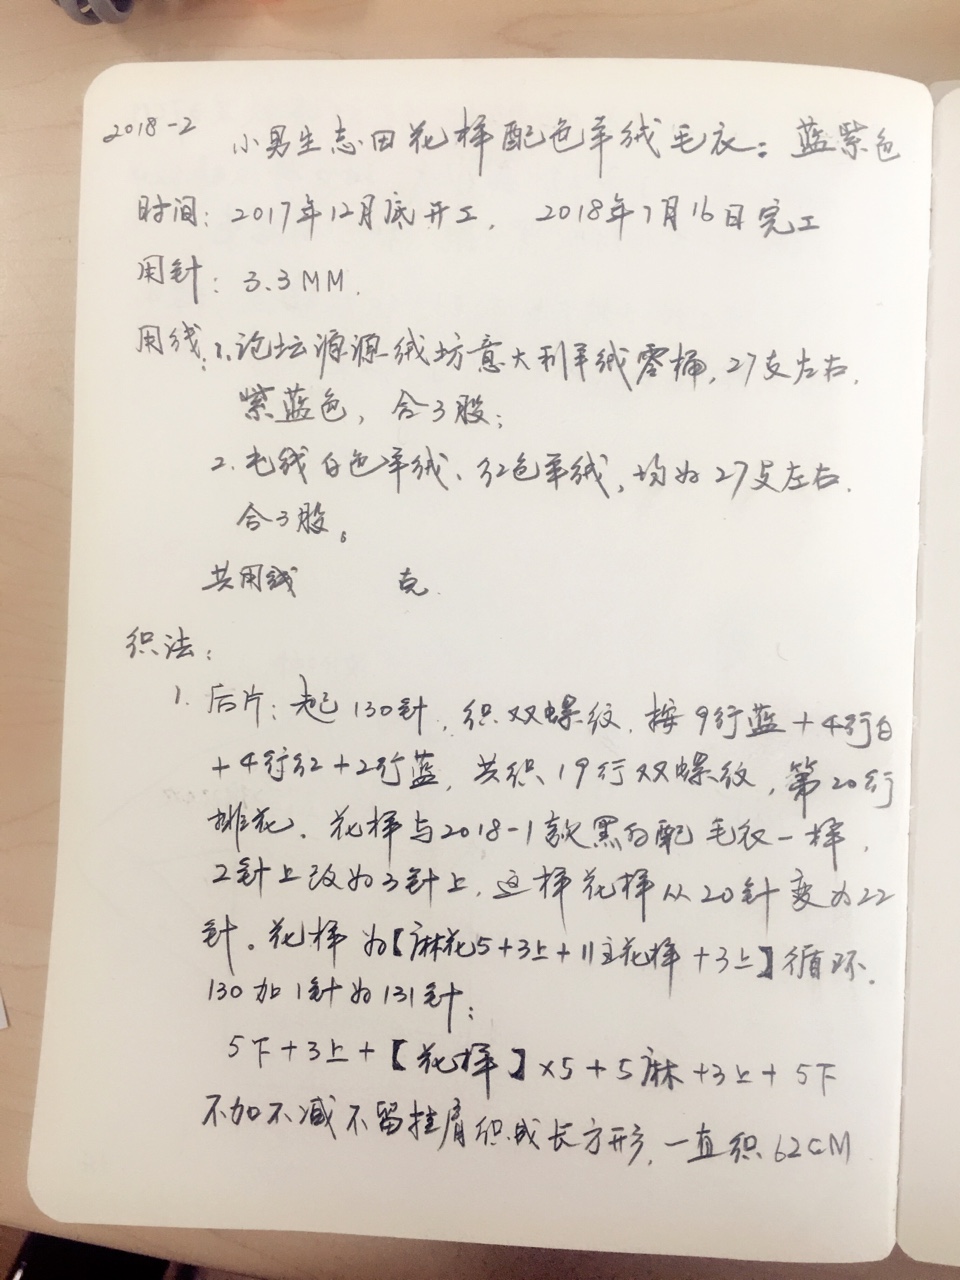 2018-2 小男生志田花样配色羊绒毛衣：蓝紫色
时间：2017年12月底开工，2018年7月16日完工
用针：3.3MM.
用线：1.论坛源源绒坊意大利羊绒零桶，27支左右，
紫蓝色，合3股；
2.毛线白色羊绒、红色羊绒，均为27支左右，
合3股。
共用线 克.
织法：
1. 后片：起130针，织双螺纹，按9行蓝+4行白
+4行红+2行蓝，共织19行双螺纹，第20行
排花，花样与2018-1款黑白配毛衣一样，
2针上改为3针上，这样花样从20针变为22
针。花样为【麻花5+3上+11主花样+3上】循环.
130加1针为131针：
5下+3上+【花样】×5+5麻+3上+5下
不加不减不留挂肩织成长方形，一直织62CM